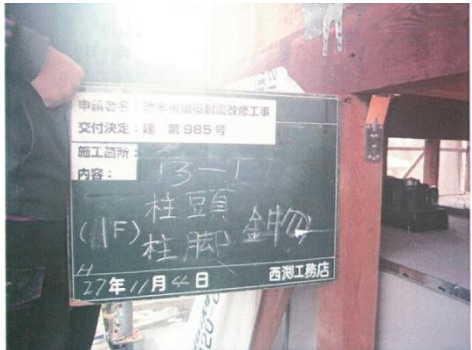 申請者名：
邸耐震改修工事
交付決定：建 第985号
施工箇所：
13-T
内容：
柱頭
(1F) 金物
柱脚
H
27年11月4日 西渕工務店